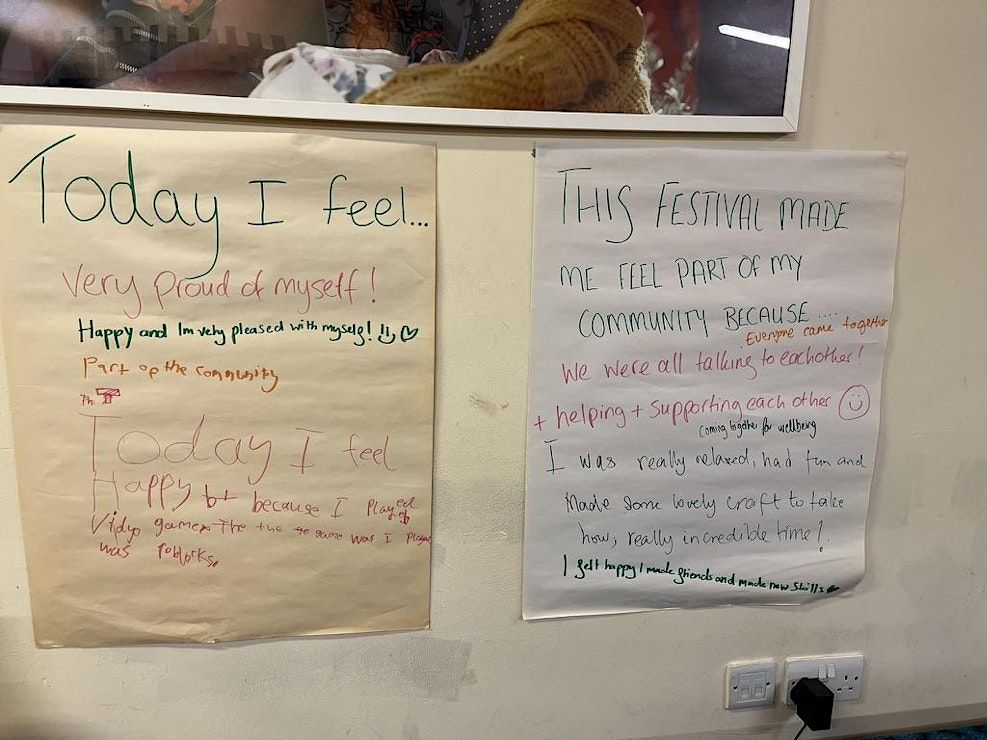 Today I feel...
Very proud of myself!
Happy and Im very pleased with myself!
Part of the community
Th
Today I feel
Happy bt because I played
Vidyo games The the game was I played
was roblocks.
THIS FESTIVAL MADE
ME FEEL PART OF MY
COMMUNITY BECAUSE ....
Everyone came together
We were all talking to eachother!
+ helping + supporting each other
coming together for wellbeing
I was really relaxed, had fun and
Made some lovely craft to take
how, really incredible time!
I felt happy I made friends and made new skills